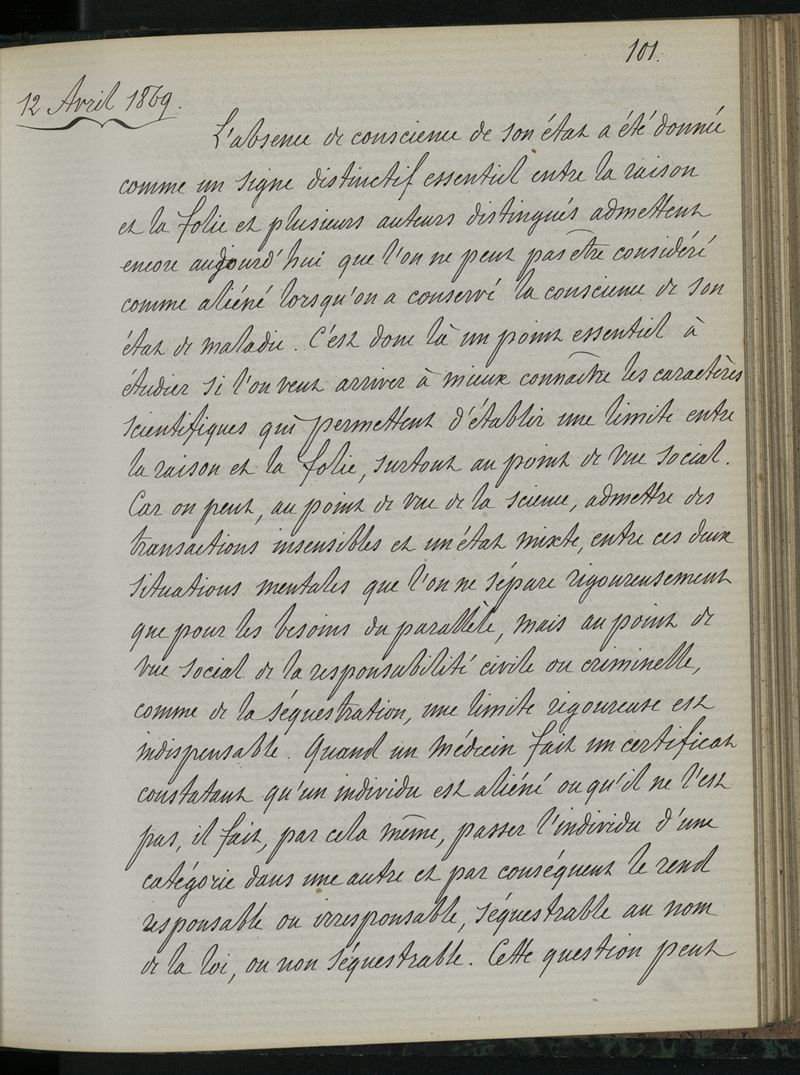 101.
12 Avril 1869.
L'absence de conscience de son état a été donnée
comme un signe distinctif essentiel entre la raison
et la folie et plusieurs auteurs distingués admettent
encore aujourd'hui que l'on ne peut pas être considéré
comme aliéné lorsqu'on a conservé la conscience de son
état de maladie. C'est donc là un point essentiel à
étudier si l'on veut arriver à mieux connaître les caractères
scientifiques qui permettent d'établir une limite entre
la raison et la folie, surtout au point de vue social.
Car on peut, au point de vue de la science, admettre des
transactions insensibles et un état mixte, entre ces deux
situations mentales que l'on ne sépare rigoureusement
que pour les besoins du parallèle, mais au point de
vue social de la responsabilité civile ou criminelle,
comme de la séquestration, une limite rigoureuse est
indispensable. Quand un médecin fait un certificat
constatant qu'un individu est aliéné ou qu'il ne l'est
pas, il fait, par cela même, passer l'individu d'une
catégorie dans une autre et par conséquent le rend
responsable ou irresponsable, séquestrable au nom
de la loi, ou non séquestrable. Cette question peut